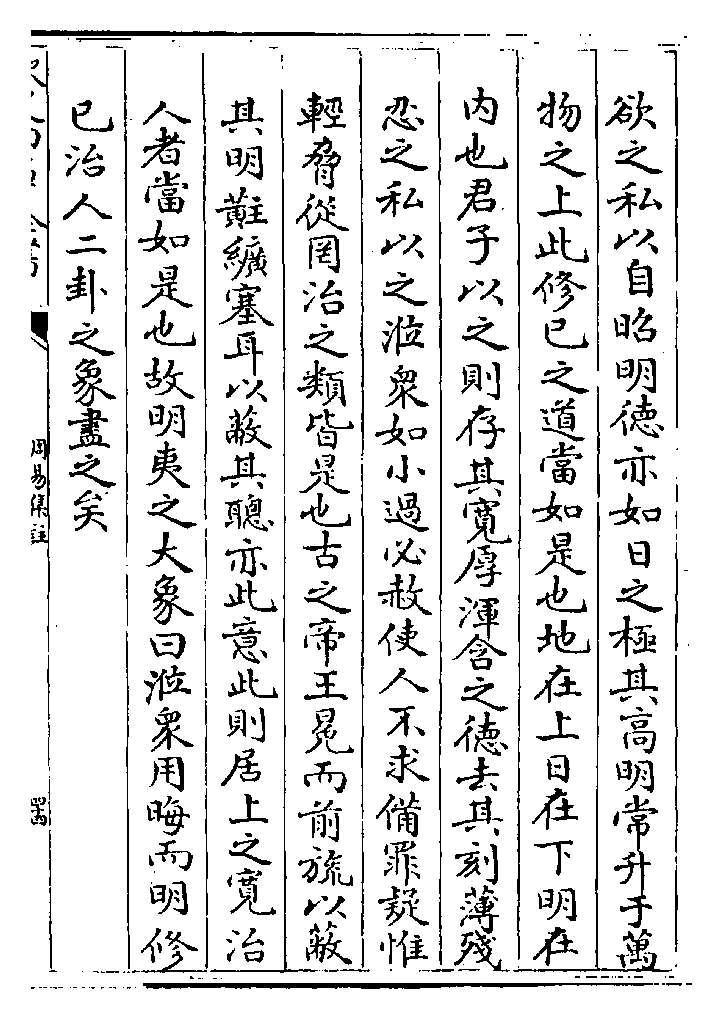 欲之私以自昭明德亦如日之極其高明常升于萬
物之上此修已之道當如是也地在上日在下明在
内也君子以之則存其寛厚渾含之徳去其刻薄殘
忍之私以之涖衆如小過必赦使人不求備罪疑惟
輕脅從罔治之類皆是也古之帝王冕而前旒以蔽
其明黈纊塞耳以蔽其聰亦此意此則居上之寛治
人者當如是也故明夷之大象曰涖衆用晦而明修
已治人二卦之象盡之矣
周易集註